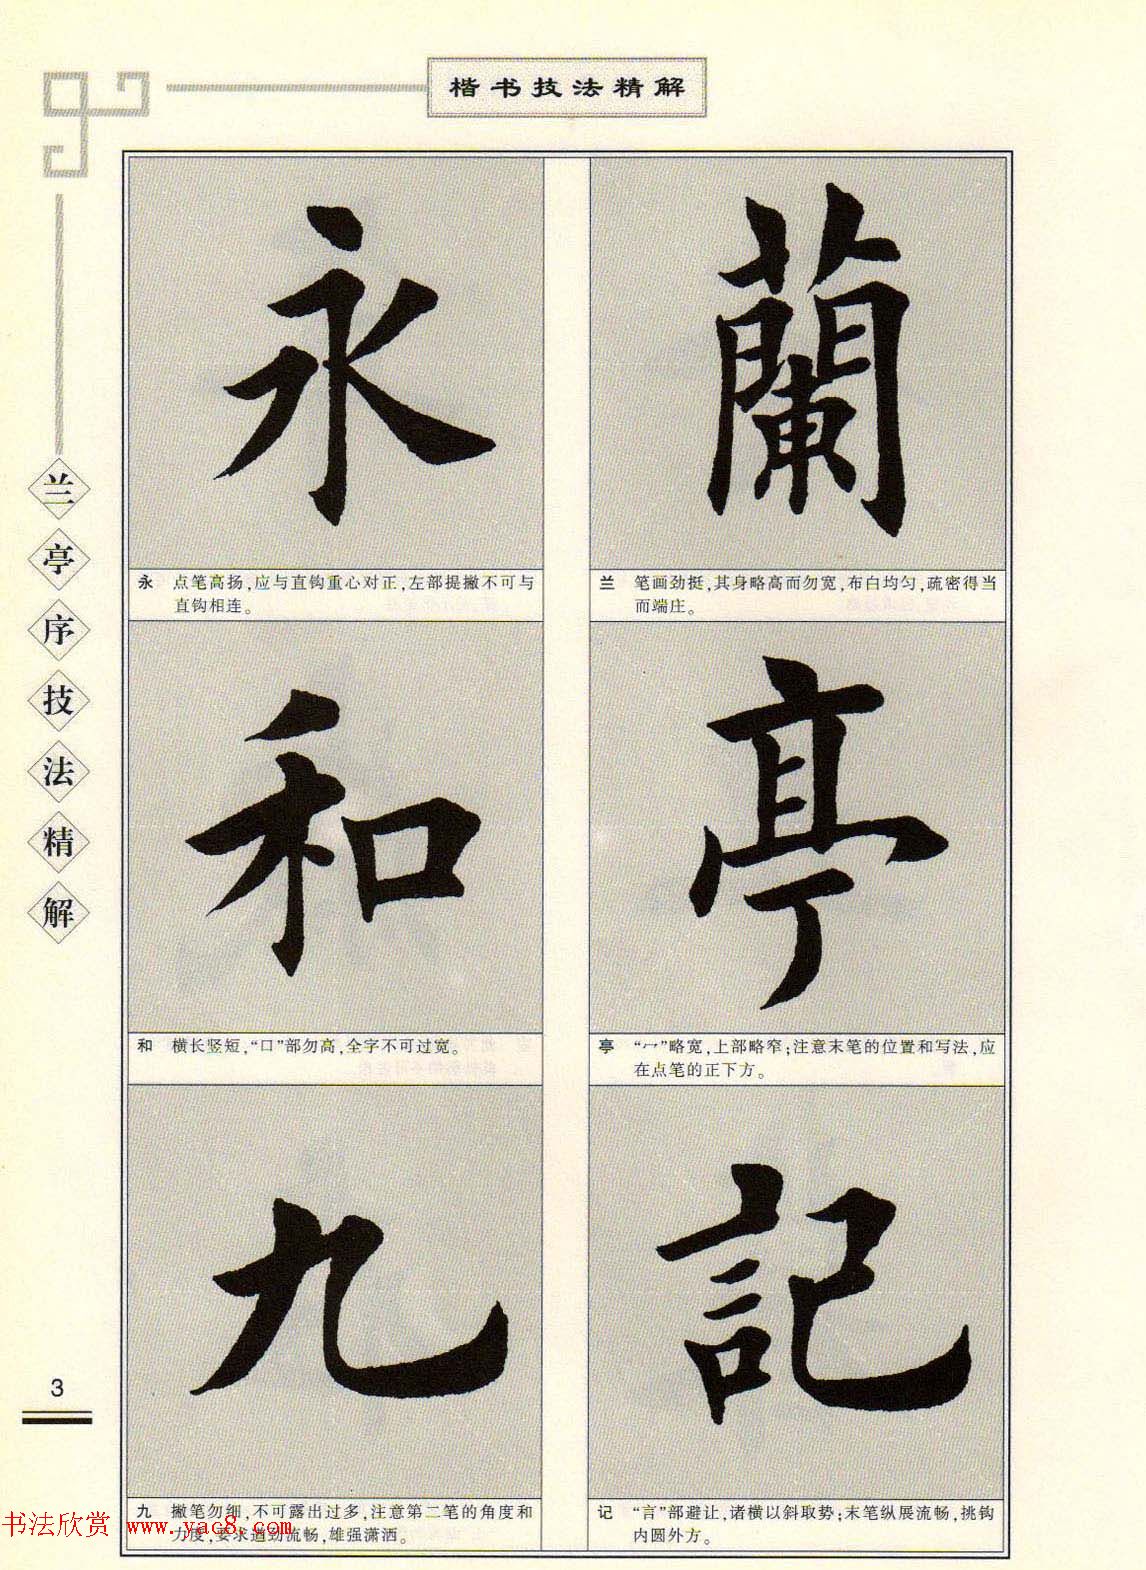 楷书技法精解
兰亭序技法精解
蘭
兰 笔画劲挺,其身略高而勿宽,布白均匀,疏密得当
而端庄。
亭
亭 “冖”略宽,上部略窄;注意末笔的位置和写法,应
在点笔的正下方。
記
记 “言”部避让,诸横以斜取势;末笔纵展流畅,挑钩
内圆外方。
永
永 点笔高扬,应与直钩重心对正,左部提撇不可与
直钩相连。
和
和 横长竖短,“口”部勿高,全字不可过宽。
九
九 撇笔勿细,不可露出过多,注意第二笔的角度和
力度,要求遒劲流畅,雄强潇洒。
3
书法欣赏 www.yac8.com